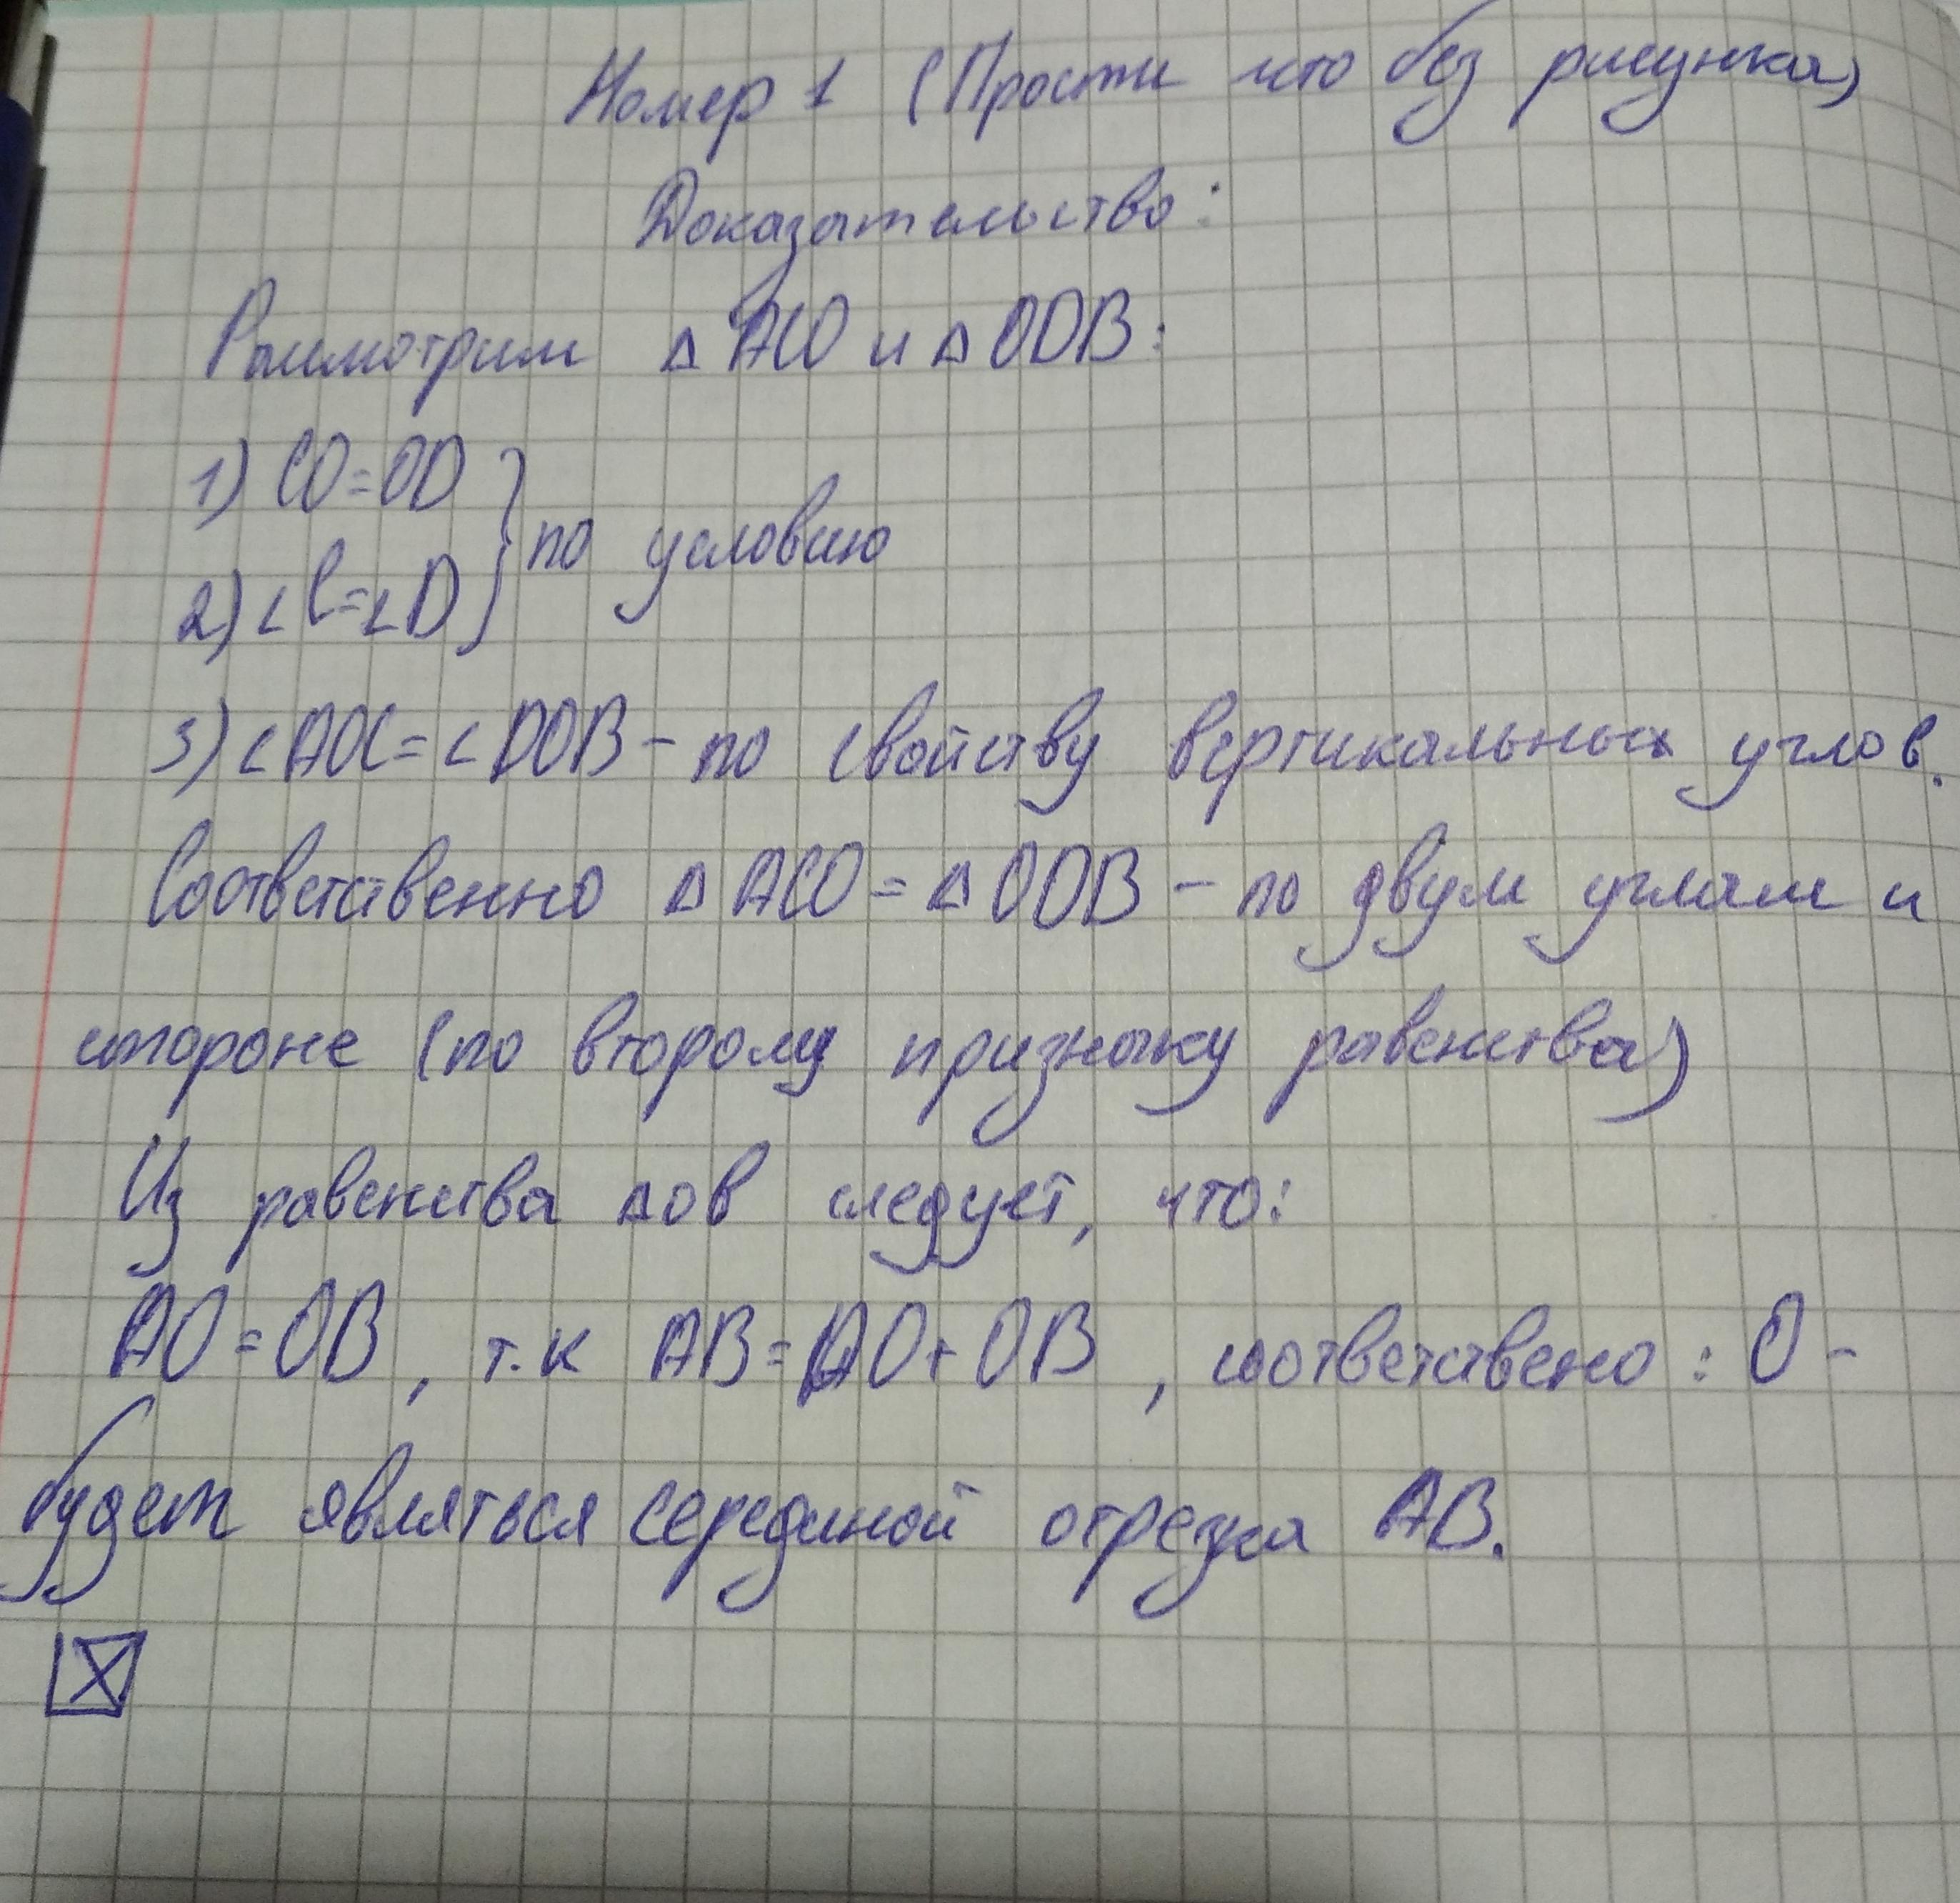 Номер 1 (Прости что без рисунка)
Доказательство:
Рассмотрим △ ACO и △ ODB:
1) CO=OD
2) ∠C=∠D } по условию
3) ∠AOC=∠DOB – по свойству вертикальных углов.
Соответственно △ ACO = △ ODB – по двум углам и
стороне (по второму признаку равенства)
Из равенства △ов следует, что:
AO=OB, т.к AB=AO+OB, соответствено: O –
будет являться серединой отрезка AB.